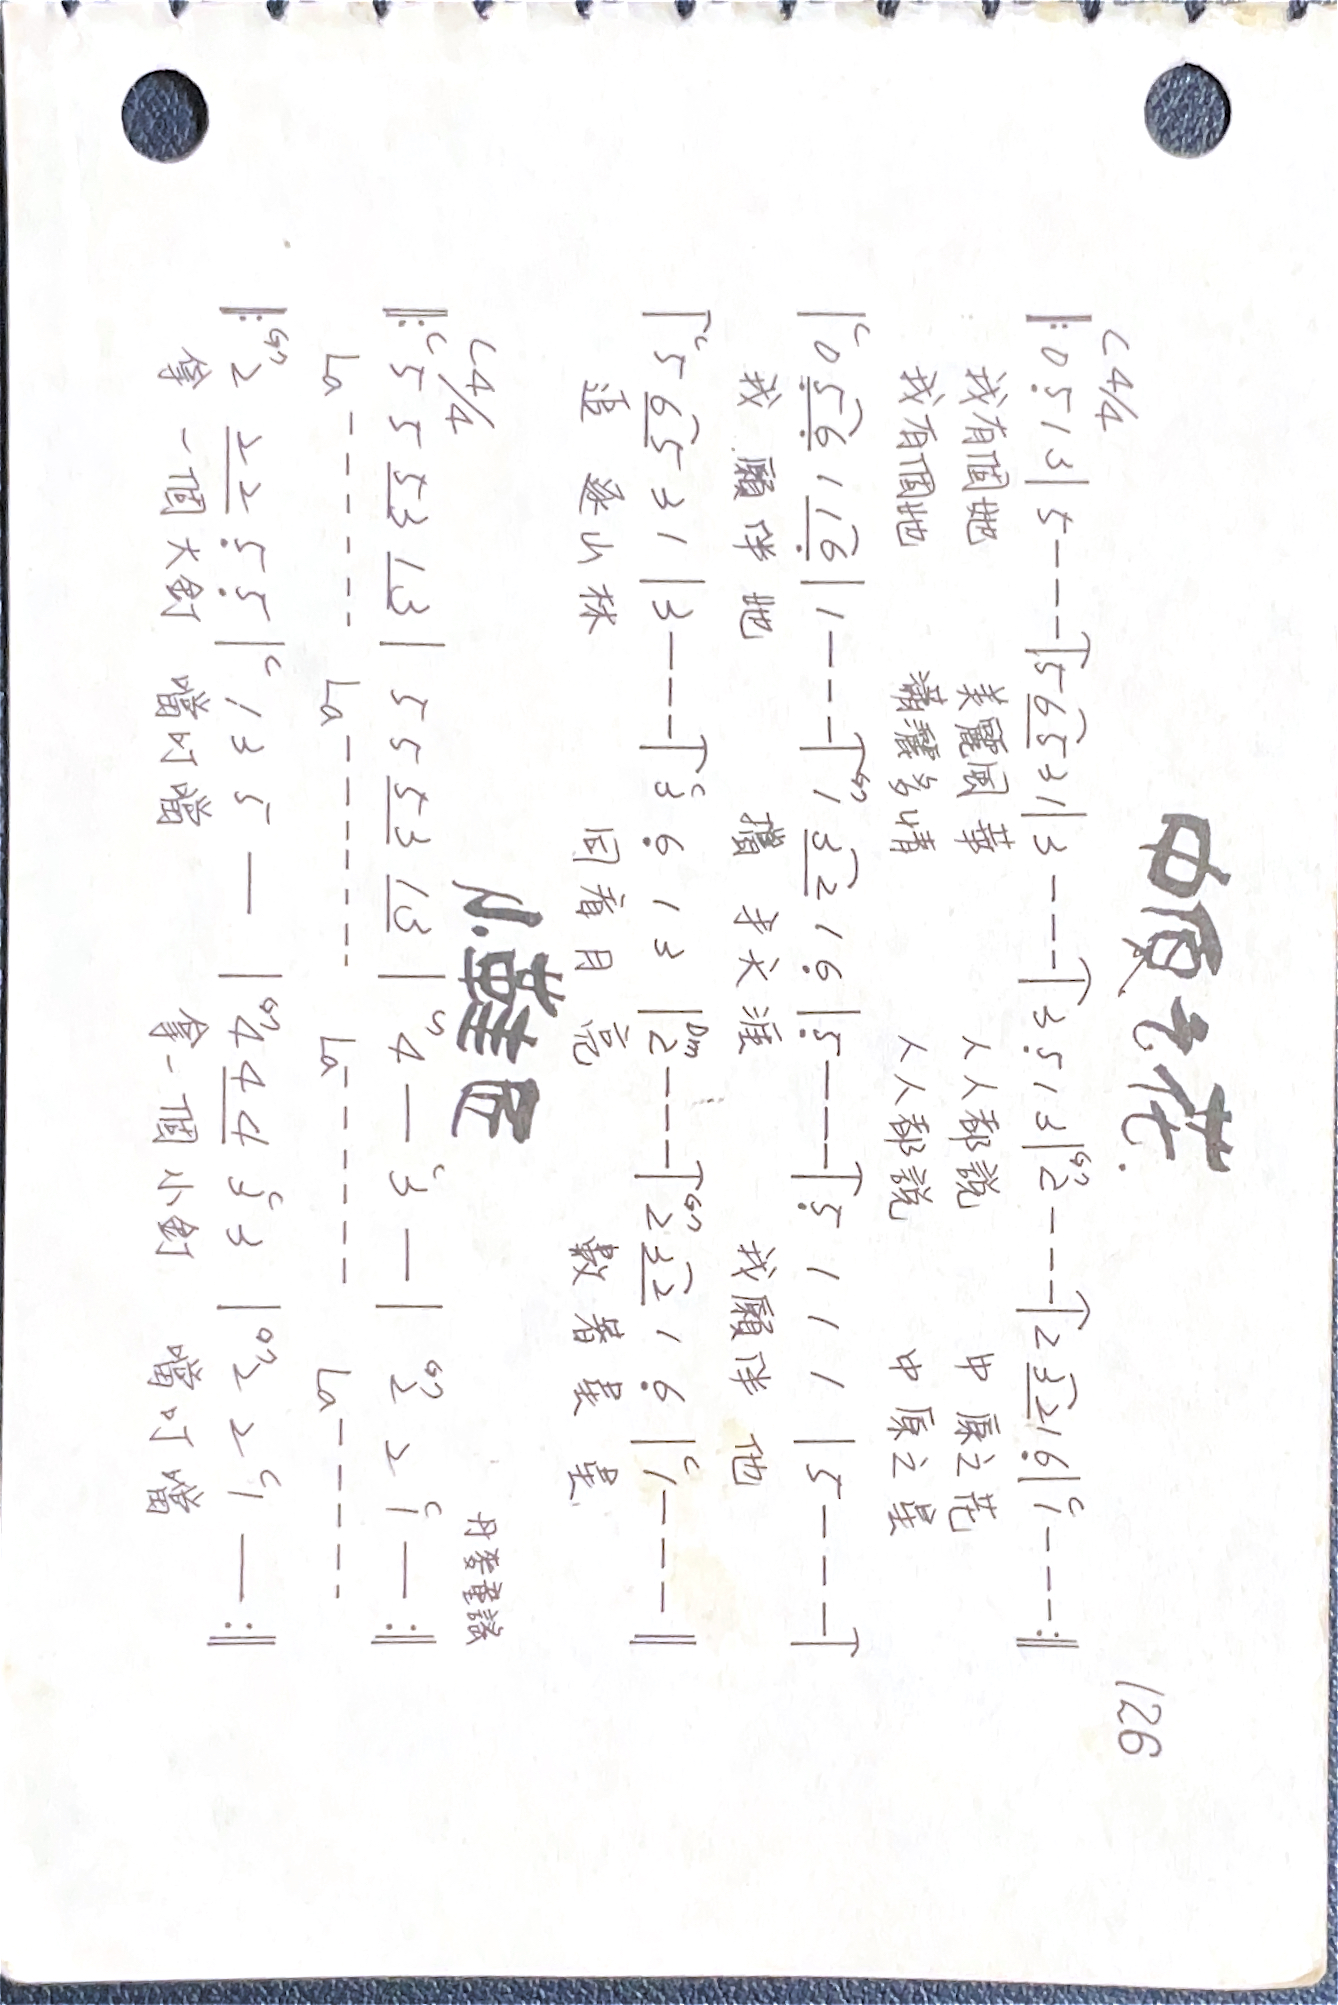 中原之花.
126
C 4/4
‖: 0 5̣ 1 3 | 5 - - - | 5 6 5 3 1 | 3 - - - | 3 5̣ 1 3 | G7 2 - - - | 2 3 2 1 6̣ | C 1 - - - :‖
我有個她 美麗風華 人人都說 中原之花
我有個她 瀟灑多情 人人都說 中原之星
| C 0 5̣ 6̣ 1 1 6̣ | 1 - - - | G7 1 3 2 1 6̣ | 5̣ - - - | 5̣ 1 1 1 | 5 - - - |
我願伴她 攜手天涯 我願伴他
| C 5 6 5 3 1 | 3 - - - | C 3 6̣ 1 3 | Dm 2 - - - | G7 2 3 2 1 6̣ | C 1 - - - ‖
追逐山林 同看月亮 數著星星
小鞋匠
C 4/4
丹麥童謠
‖: C 5 5 5 3 1 3 | 5 5 5 3 1 3 | G7 4 — C 3 — | G7 2 2 C 1 — :‖
La - - - - - - La - - - - - - - La - - - - - - La - - - - -
‖: G7 2 2 2 5̣ 5̣ | C 1 3 5 — | G7 4 4 4 C 3 3 | G7 2 2 C 1 — :‖
拿一個大釘 噹叮噹 拿一個小釘 噹叮噹